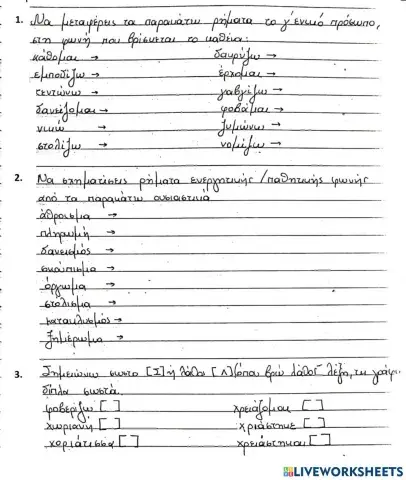 1. Να μεταφέρεις τα παρακάτω ρήματα το γ' ενικό πρόσωπο,
στη φωνή που βρίσκεται το καθένα:
κάθομαι →
δακρύζω →
εμποδίζω →
έρχομαι →
τεντώνω →
γαβγίζω →
δανείζομαι →
φοβάμαι →
νικώ →
ζυμώνω →
στολίζω →
νομίζω →
2. Να σχηματίσεις ρήματα ενεργητικής / παθητικής φωνής
από τα παρακάτω ουσιαστικά
άθροισμα →
πληρωμή →
δανεισμός →
σκούπισμα →
όργωμα →
στόλισμα →
κατακλυσμός →
ξημέρωμα →
3. Σημειώνω σωστό [Σ] ή λάθος [Λ] (όπου βρω λάθος λέξη, τη γράφω
δίπλα σωστά.
φοβερίζω [ ]
χρειάζομαι [ ]
χωριανή [ ]
χριάστηκε [ ]
χοριάτισσα [ ]
χρειάστηκαι [ ]
LIVEWORKSHEETS